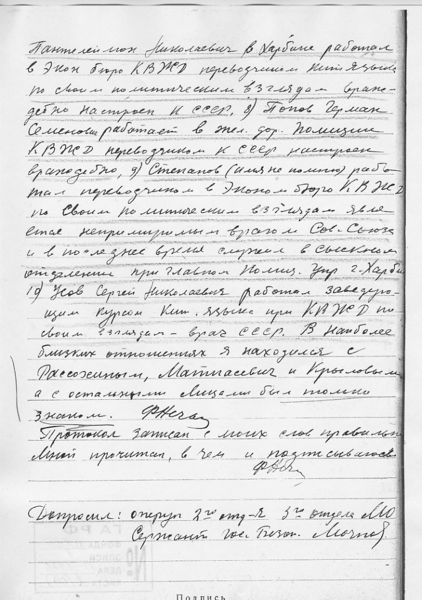 Пантелеймон Николаевич в Харбине работал
в Экон бюро КВЖД переводчиком кит. языка
по своим политическим взглядам враж-
дебно настроен к СССР, 8) Попов Герман
Семенович работает в жел. дор. полиции
КВЖД переводчиком к СССР настроен
враждебно, 9) Степанов (имя не помню) рабо-
тал переводчиком в Эконом бюро КВЖД
по своим политическим взглядам явля-
ется непримиримым врагом Сов. Союза
и в последнее время служил в сыскном
отделении при главном полиц. упр г. Харби
10) Усов Сергей Николаевич работал заведую-
щим курсом кит. языка при КВЖД по
своим взглядам - враг СССР. В наиболее
близких отношениях я находился с
Рассохиным, Матпасевич и Крыловым
а с остальными лицами был только
знаком.
Протокол записан с моих слов правильно
мной прочитан, в чем и подписываюсь
Допросил: оперуп 2го отд-я 3го отдела
Сержант гос. безоп.
ГА РФ
ФОНД
ОПИСИ
ДЕЛА
Подпись